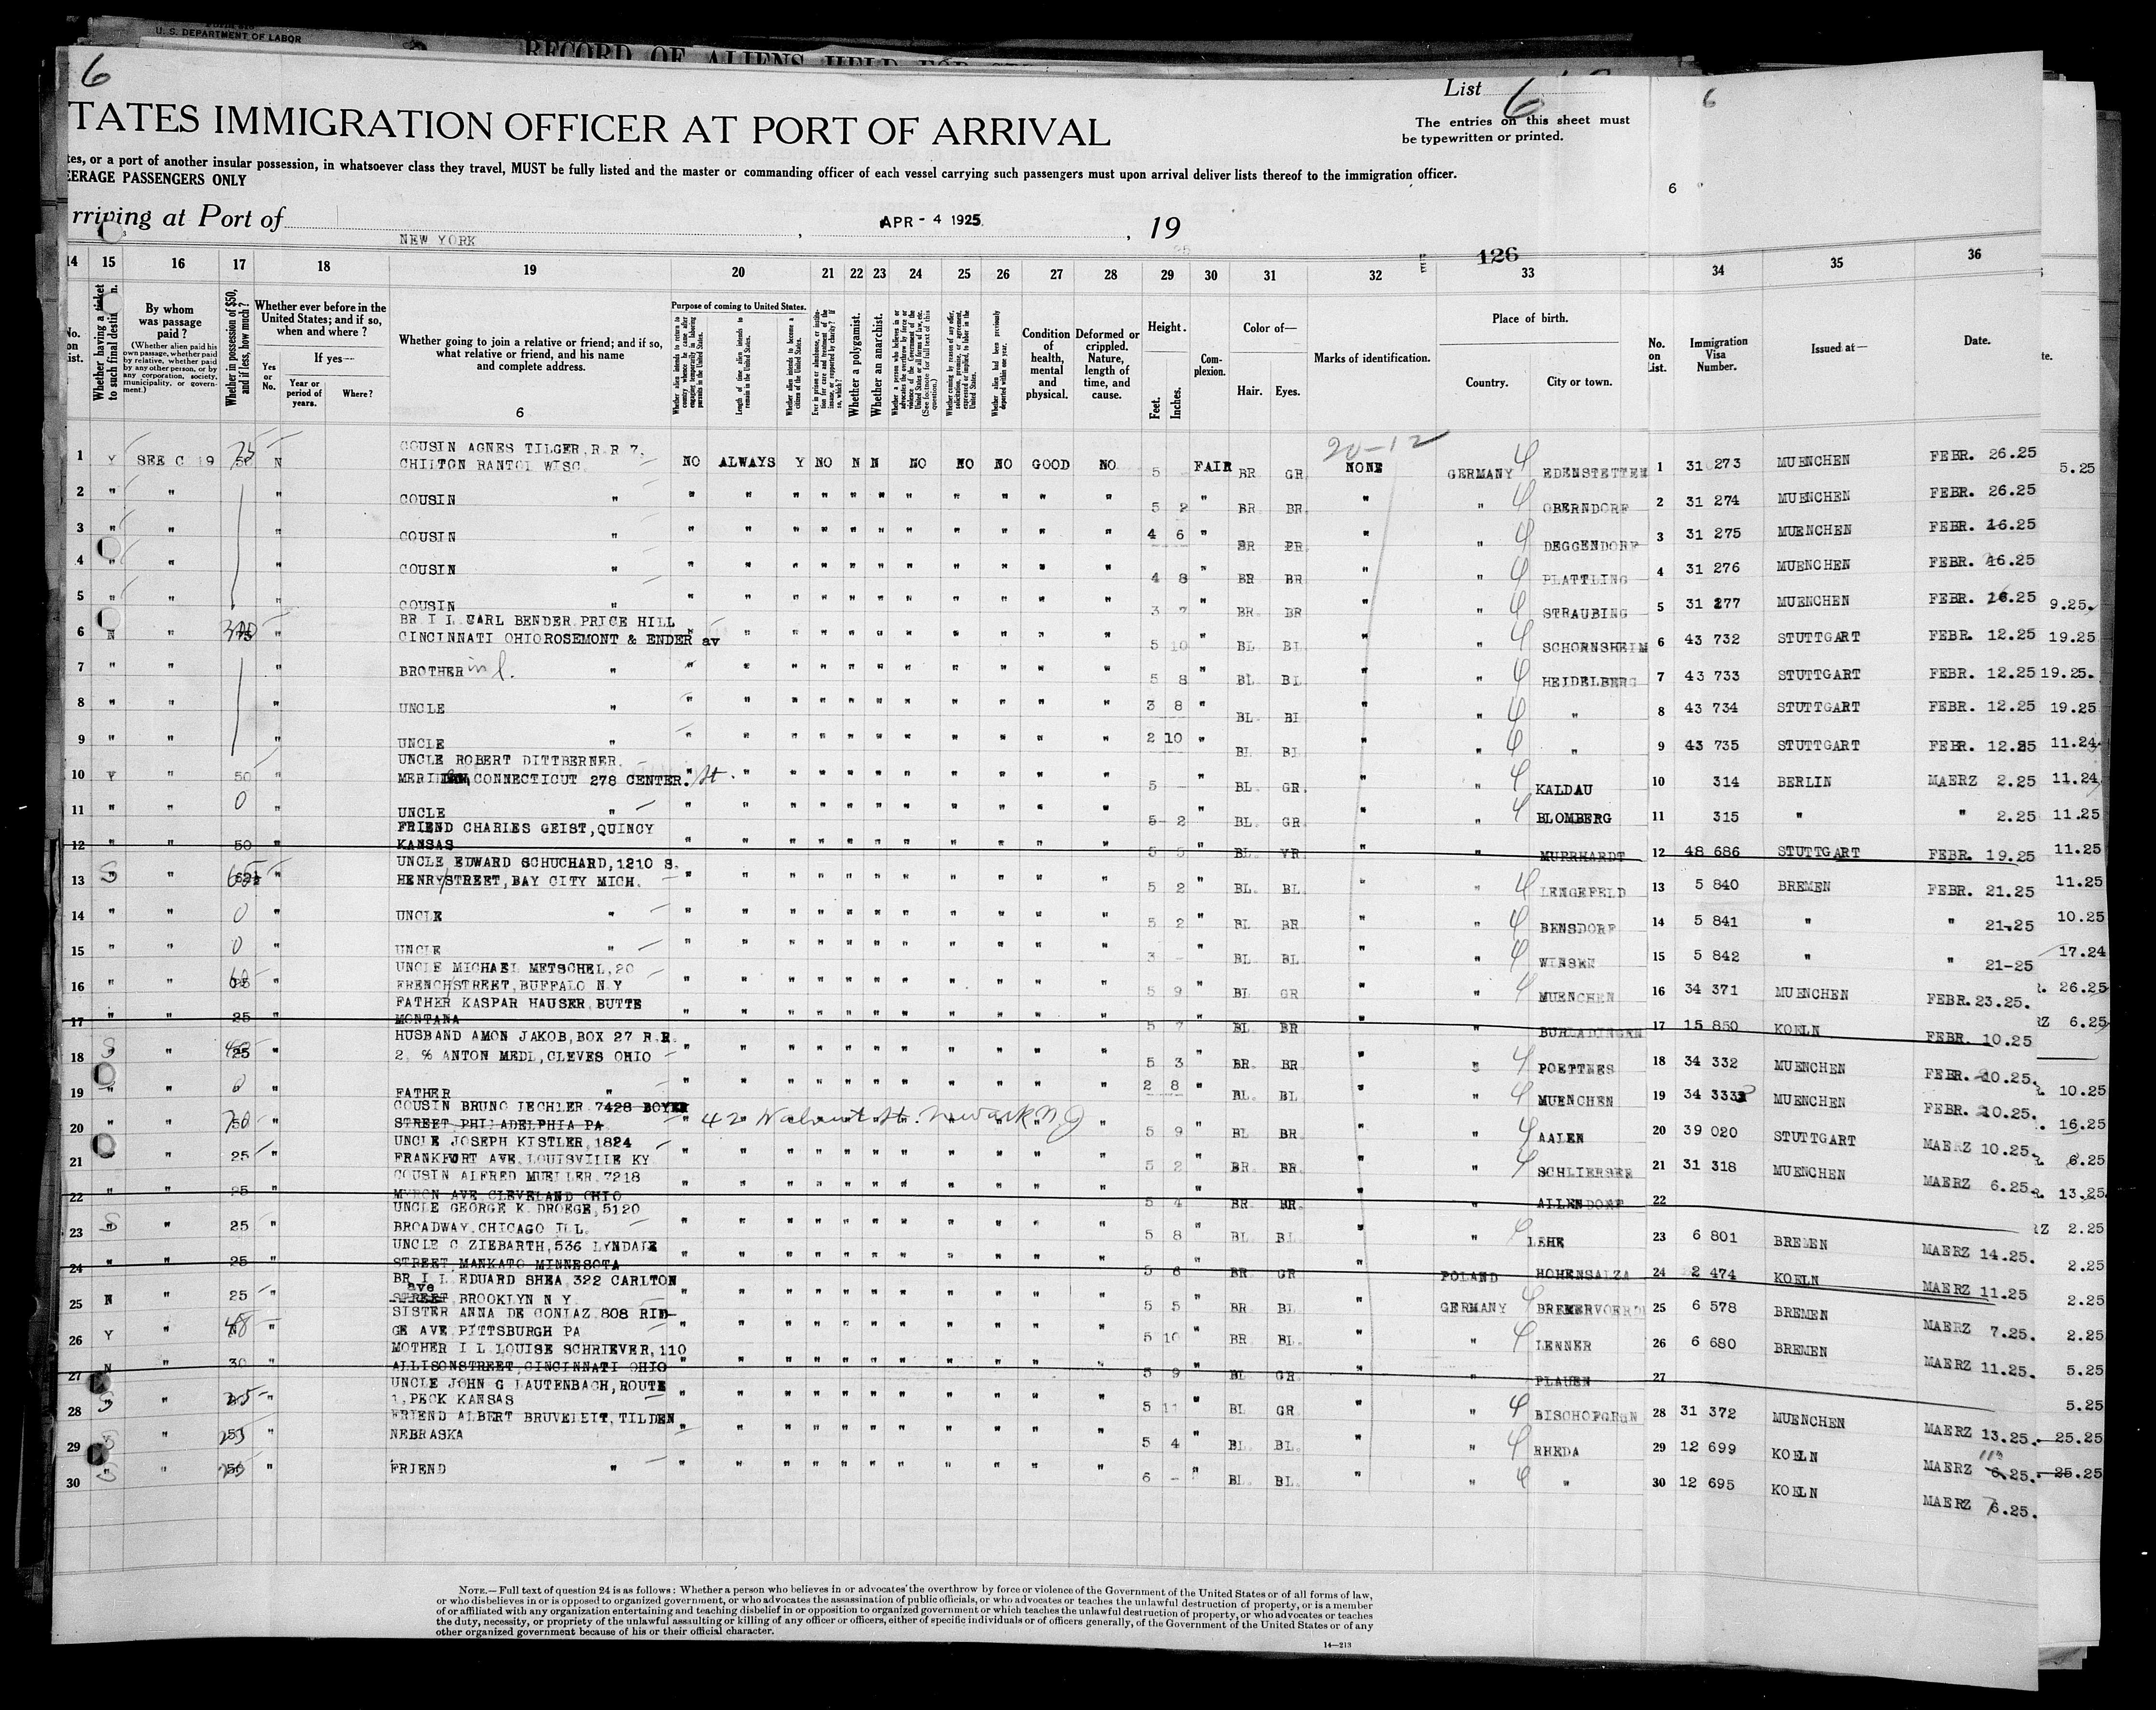 U. S. DEPARTMENT OF LABOR
RECORD OF ALIENS HELD FOR
6
List 6
TATES IMMIGRATION OFFICER AT PORT OF ARRIVAL
The entries on this sheet must
be typewritten or printed.
6
tes, or a port of another insular possession, in whatsoever class they travel, MUST be fully listed and the master or commanding officer of each vessel carrying such passengers must upon arrival deliver lists thereof to the immigration officer.
EERAGE PASSENGERS ONLY
6
rriving at Port of NEW YORK, APR - 4 1925, 19
126
14 15 16 17 18 19 20 21 22 23 24 25 26 27 28 29 30 31 32 33 34 35 36
No. on List.
Whether having a ticket to such final destin n.
By whom was passage paid?
(Whether alien paid his own passage, whether paid by relative, whether paid by any other person, or by any corporation, society, municipality, or government.)
Whether in possession of $50, and if less, how much?
Whether ever before in the United States; and if so, when and where?
Yes or No.
If yes—
Year or period of years.
Where?
Whether going to join a relative or friend; and if so, what relative or friend, and his name and complete address.
6
Purpose of coming to United States.
Length of time alien intends to remain in the United States.
Whether alien intends to become a citizen of the United States.
Whether a polygamist.
Whether an anarchist.
Whether alien had been previously deported within one year.
Condition of health, mental and physical.
Deformed or crippled. Nature, length of time, and cause.
Height.
Feet.
Inches.
Complexion.
Color of—
Hair.
Eyes.
Marks of identification.
Place of birth.
Country.
City or town.
No. on List.
Immigration Visa Number.
Issued at—
Date.
20-12
1 Y SEE C 19 75 N COUSIN AGNES TILGER, R.R 7, CHILTON RANTOL WISC. NO ALWAYS Y NO N N NO NO NO GOOD NO 5 - FAIR BR GR NONE GERMANY EDENSTETTEN 1 31 273 MUENCHEN FEBR. 26.25
2 " " " COUSIN " 5 2 " BR BR " " OBERNDORF 2 31 274 MUENCHEN FEBR. 26.25
3 " " " COUSIN " 4 6 " BR BR " " DEGGENDORF 3 31 275 MUENCHEN FEBR. 26.25
4 " " " COUSIN " 4 8 " BR BR " " PLATTLING 4 31 276 MUENCHEN FEBR. 26.25
5 " " " COUSIN " 3 7 " BR BR " " STRAUBING 5 31 277 MUENCHEN FEBR. 26.25
6 N " 300 " BR I L CARL BENDER PRICE HILL CINCINNATI OHIO ROSEMONT & ENDER av 5 10 " BL BL " " SCHORNSHEIM 6 43 732 STUTTGART FEBR. 12.25
7 " " " BROTHER in l. " 5 8 " BL BL " " HEIDELBERG 7 43 733 STUTTGART FEBR. 12.25
8 " " " UNCLE " 3 8 " BL BL " " " 8 43 734 STUTTGART FEBR. 12.25
9 " " " UNCLE " 2 10 " BL BL " " " 9 43 735 STUTTGART FEBR. 12.25
10 Y " 50 " UNCLE ROBERT DITTBERNER. MERIDEN, CONNECTICUT 278 CENTER. St. 5 - " BL GR " " KALDAU 10 314 BERLIN MAERZ 2.25
11 " " 0 " UNCLE " 5 2 " BL GR " " BLOMBERG 11 315 " " 2.25
12 " " 50 " FRIEND CHARLES GEIST, QUINCY KANSAS 5 5 " BL " " MURRHARDT 12 48 686 STUTTGART FEBR. 19.25
13 " " 65 " UNCLE EDWARD SCHUCHARD, 1210 S. HENRYSTREET, BAY CITY MICH. 5 2 " BL BL " " LENGEFELD 13 5 840 BREMEN FEBR. 21.25
14 " " 0 " UNCLE " 5 2 " BL BR " " BENSDORF 14 5 841 " " 21-25
15 " " 0 " UNCLE " 3 - " BL BL " " WINSEN 15 5 842 " " 21-25
16 " " " UNCLE MICHAEL METSCHEL, 20 FRENCHSTREET, BUFFALO N Y 5 9 " BL GR " " MUENCHEN 16 34 371 MUENCHEN FEBR. 23.25.
17 " " 25 " FATHER KASPAR HAUSER, BUTTE MONTANA 5 7 " BL BR " " BURLADINGEN 17 15 850 KOELN FEBR. 10.25
18 " " " HUSBAND AMON JAKOB, BOX 27 R.R. 2, % ANTON MEDL, CLEVES OHIO 5 3 " BR BR " " POETTMES 18 34 332 MUENCHEN FEBR. 20.25.
19 " " 0 " FATHER " 2 8 " BL BL " " MUENCHEN 19 34 333 MUENCHEN FEBR. 20.25.
20 " " " COUSIN BRUNO JECHLER 7428 BOYER STREET PHILADELPHIA PA 42 Walnut St. Newark N.J 5 9 " BL BR " " AALEN 20 39 020 STUTTGART MAERZ 10.25.
21 " " 25 " UNCLE JOSEPH KISTLER, 1824 FRANKFORT AVE, LOUISVILLE KY 5 2 " BR BR " " SCHLIERSEE 21 31 318 MUENCHEN MAERZ 6.25.
22 " " 25 " COUSIN ALFRED MUELLER, 7218 MYRON AVE CLEVELAND OHIO 5 4 " BR BR " " ALLENDORF 22
23 " " 25 " UNCLE GEORGE K DROEGE, 5120 BROADWAY, CHICAGO ILL. 5 8 " BL BL " " LEHE 23 6 801 BREMEN MAERZ 14.25.
24 " " 25 " UNCLE C ZIEBARTH, 536 LYNDALE STREET, MANKATO MINNESOTA 5 6 " BR GR " POLAND HOHENSALZA 24 2 474 KOELN MAERZ 11.25
25 N " 25 " BR I L EDUARD SHEA 322 CARLTON STREET ave BROOKLYN N Y. 5 5 " BR BL " GERMANY BREMERVOERD 25 6 578 BREMEN MAERZ 7.25.
26 Y " 48 " SISTER ANNA DE CONIAZ 808 RID- GE AVE PITTSBURGH PA 5 10 " BR BL " " LENNER 26 6 680 BREMEN MAERZ 11.25.
27 N " 30 " MOTHER I L LOUISE SCHRIEVER, 110 ALLISONSTREET, CINCINNATI OHIO 5 9 " BL GR " " PLAUEN 27
28 " " " UNCLE JOHN G LAUTENBACH, ROUTE 1, PECK KANSAS 5 11 " BL GR " " BISCHOFGRUN 28 31 372 MUENCHEN MAERZ 13.25.
29 " " " FRIEND ALBERT BRUVELEIT, TILDEN NEBRASKA 5 4 " BL BL " " RHEDA 29 12 699 KOELN MAERZ 6.25.
30 " " " FRIEND " 6 - " BL BL " " " 30 12 695 KOELN MAERZ 6.25.
NOTE.—Full text of question 24 is as follows: Whether a person who believes in or advocates the overthrow by force or violence of the Government of the United States or of all forms of law,
or who disbelieves in or is opposed to organized government, or who advocates the assassination of public officials, or who advocates or teaches the unlawful destruction of property, or is a member
of or affiliated with any organization entertaining and teaching disbelief in or opposition to organized government or which teaches the unlawful destruction of property, or who advocates or teaches
the duty, necessity, or propriety of the unlawful assaulting or killing of any officer or officers, either of specific individuals or of officers generally, of the Government of the United States or of any
other organized government because of his or their official character.
14—213